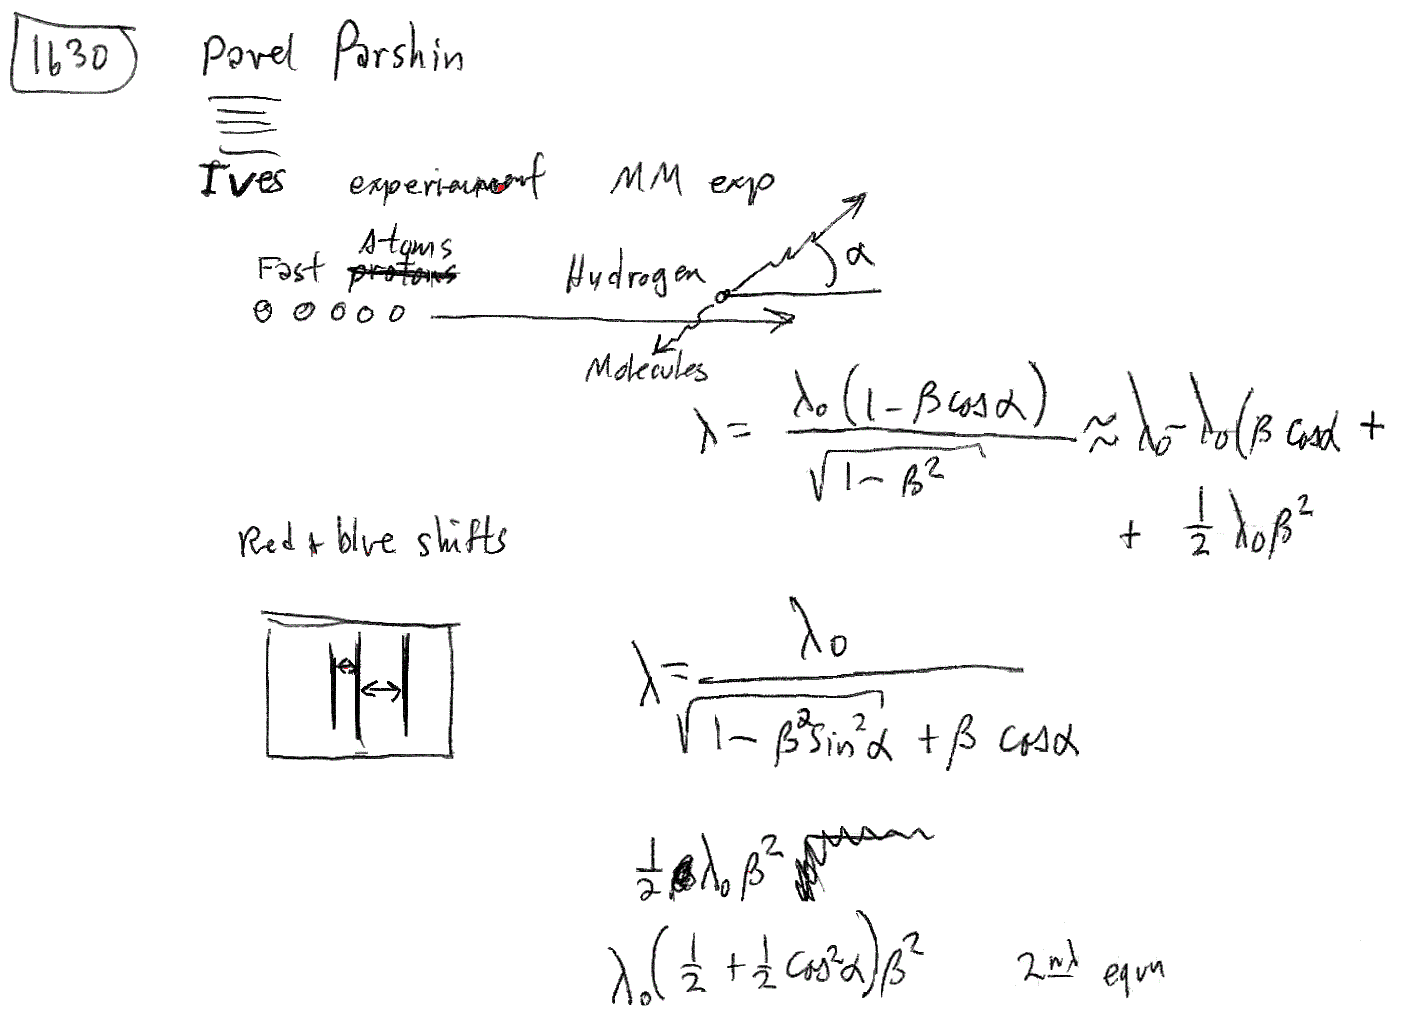 1630 Pavel Parshin
Ives experiment MM exp
Fast protons Atoms
Hydrogen α
Molecules
λ = λ₀(1 - β cos α) / √(1 - β²) ≈ λ₀ - λ₀(β cos α +
+ 1/2 λ₀β²
Red + blue shifts
λ = λ₀ / √(1 - β² sin² α) + β cos α
1/2 λ₀ β²
λ₀(1/2 + 1/2 cos² α)β² 2nd equn